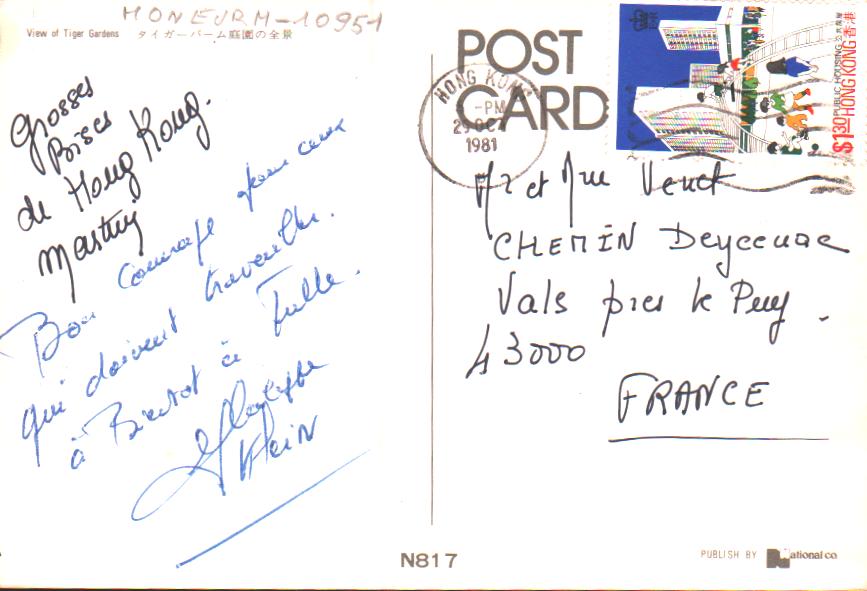 MONEURM-10951
View of Tiger Gardens タイガーバーム庭園の全景
Grosses
Bises
de Hong Kong.
Bon courage pour ceux
qui doivent travailler.
à Bientot à Tulle.
Klein
POST
CARD
HONG KONG
-PM
29 OCT
1981
$1.30 PUBLIC HOUSING 公共房屋
HONG KONG 香港
Mr et Mme Venet
CHEMIN Deyceuac
Vals pres le Puy.
43000
FRANCE
N817
PUBLISH BY National co